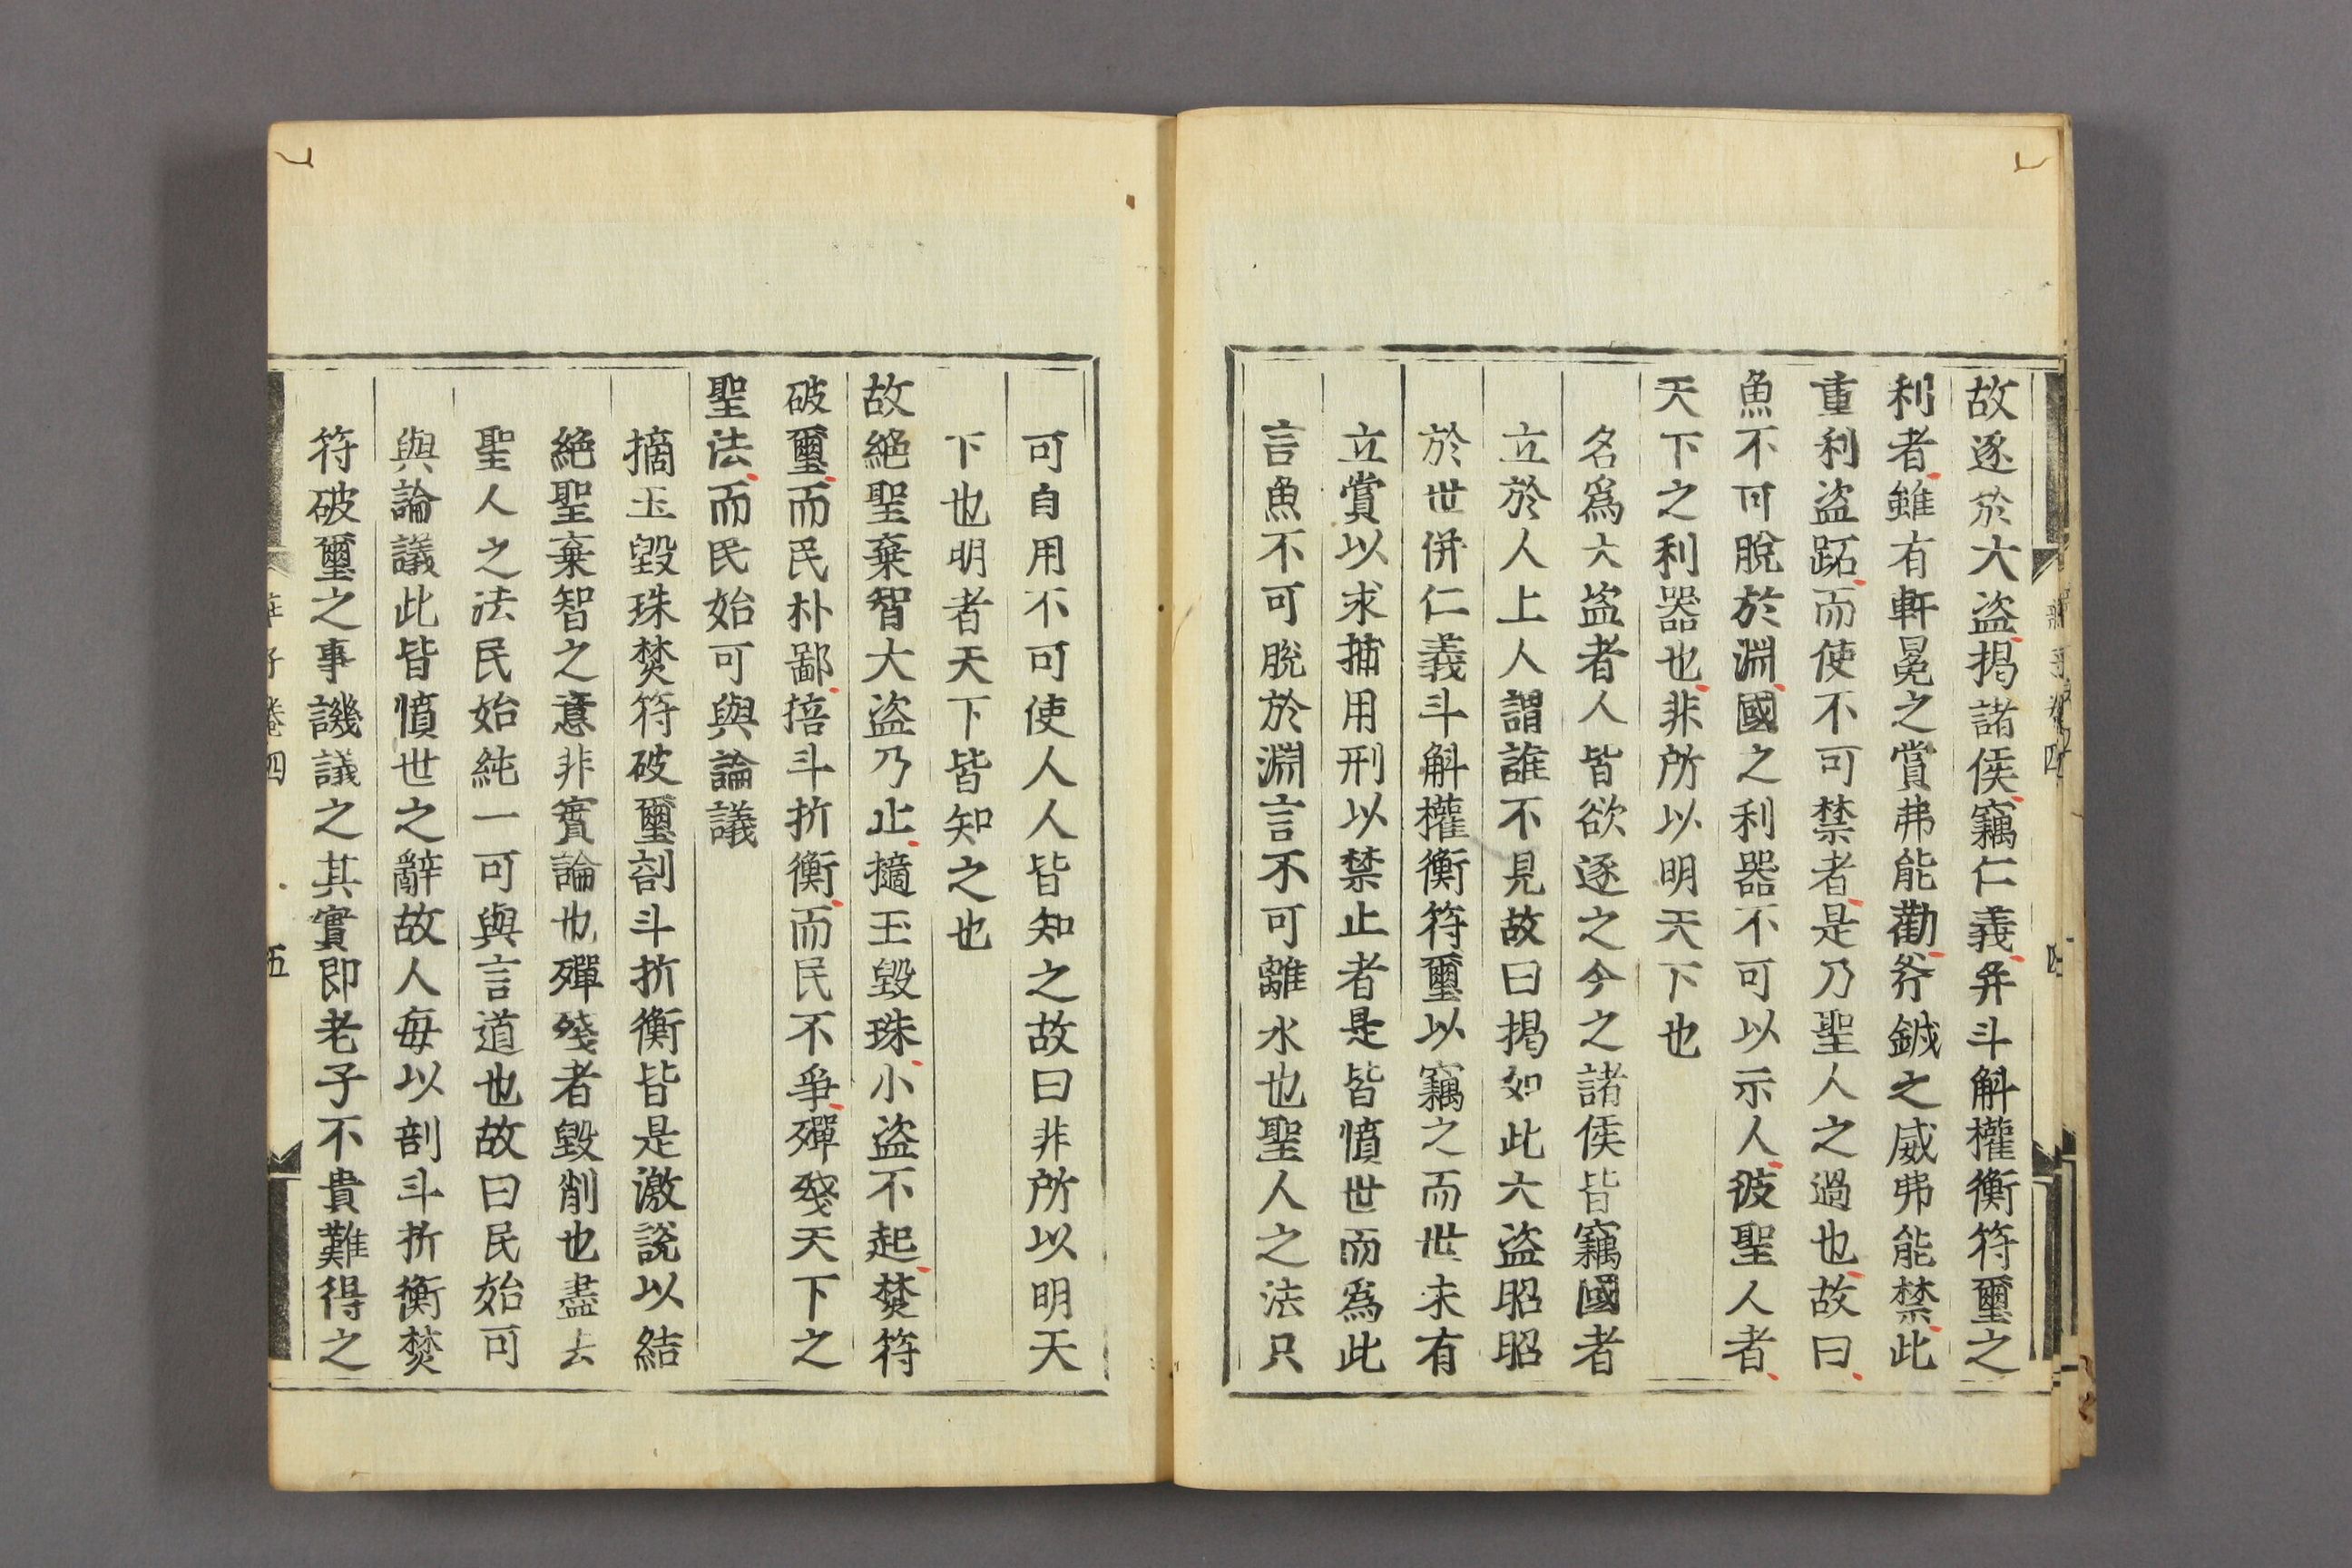 故逐於大盜揭諸侯竊仁義并斗斛權衡符璽之
利者雖有軒冕之賞弗能勸斧鉞之威弗能禁此
重利盜跖而使不可禁者是乃聖人之過也故曰
魚不可脫於淵國之利器不可以示人彼聖人者
天下之利器也非所以明天下也
名爲大盜者人皆欲逐之今之諸侯皆竊國者
立於人上人謂誰不見故曰揭如此大盜昭昭
於世併仁義斗斛權衡符璽以竊之而世未有
立賞以求捕用刑以禁止者是皆憤世而爲此
言魚不可脫於淵言不可離水也聖人之法只
可自用不可使人人皆知之故曰非所以明天
下也明者天下皆知之也
故絕聖棄智大盜乃止擿玉毀珠小盜不起焚符
破璽而民朴鄙掊斗折衡而民不爭殫殘天下之
聖法而民始可與論議
摘玉毀珠焚符破璽剖斗折衡皆是激說以結
絕聖棄智之意非實論也殫殘者毀削也盡去
聖人之法民始純一可與言道也故曰民始可
與論議此皆憤世之辭故人每以剖斗折衡焚
符破璽之事譏議之其實即老子不貴難得之
莊子卷四
五